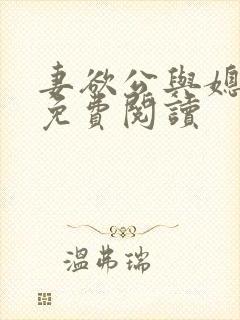 妻欲公與媳
免費閱讀
溫弗瑞